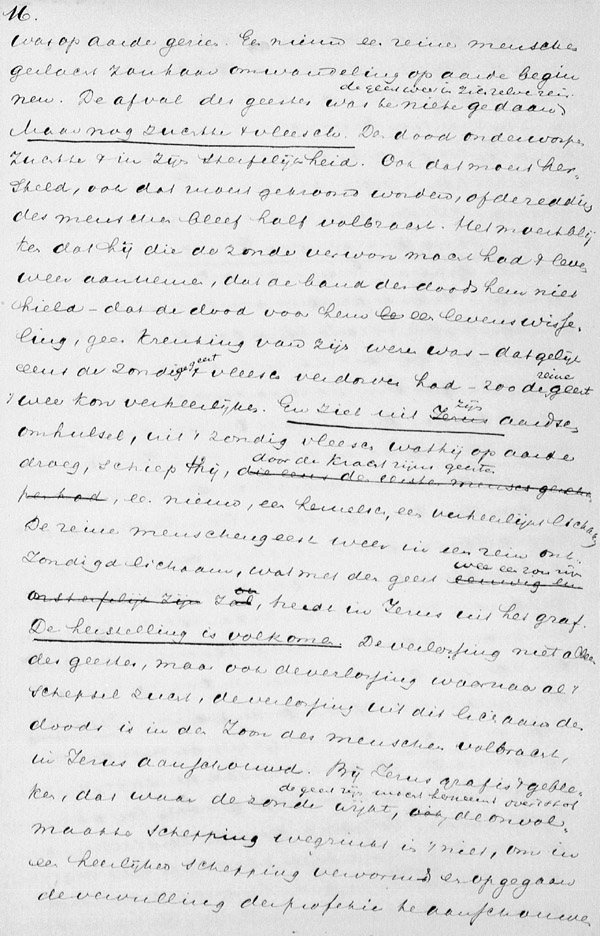 16.
was op aarde gezien. Een nieuw een reine menschen
geslacht zou haar omwandeling op aarde begin
nen. De afval des geestes was te niete gedaan
de geest weer in zich zelve rein.
Maar nog zuchtte 't vleesch. De dood onderworpen
zuchtte 't in zijn sterfelijkheid. Ook dat moest her-
steld, ook dat moest gekroond worden, of de redding
des menschen bleef half volbracht. Het moest blij
ken dat hij die de zonde verwon macht had 't leven
weer aan te nemen, dat de band des doods hem niet
hield – dat de dood voor hem een levenswisse-
ling, geen krenking van zijn wezen was – dat gelijk
eens de zondige geest 't vleesch verdorven had – zoo de reine geest
't weer kon verheerlijken. En ziet uit Jezus zijn aardsch
omhulsel, uit 't zondig vleesch wat hij op aarde
droeg, schiep Hij, door de kracht zijns geestes
die eens den eersten mensch gescha-
pen had, een nieuw, een hemelsch, een verheerlijkt lichaam
De reine menschengeest weer in een rein ont-
zondigd lichaam, wat met den geest
onsterfelijk zijn zal, treedt in Jezus uit het graf.
De herstelling is volkomen. De verlossing niet alleen
des geestes, maar ook de verlossing waarnaar al 't
schepsel zucht, de verlossing uit dit lichaam des
doods is in den Zoon des menschen volbracht,
in Jezus aanschouwd. Bij Jezus graf is 't geble-
ken, dat waar de zonde wijkt, ook de onvol-
de geest zijn macht herneemt over 't stof
maakte schepping wegzinkt in 't niet, om in
een heerlijker schepping vervormd en opgegaan
de vervulling der profetie te aanschouwen